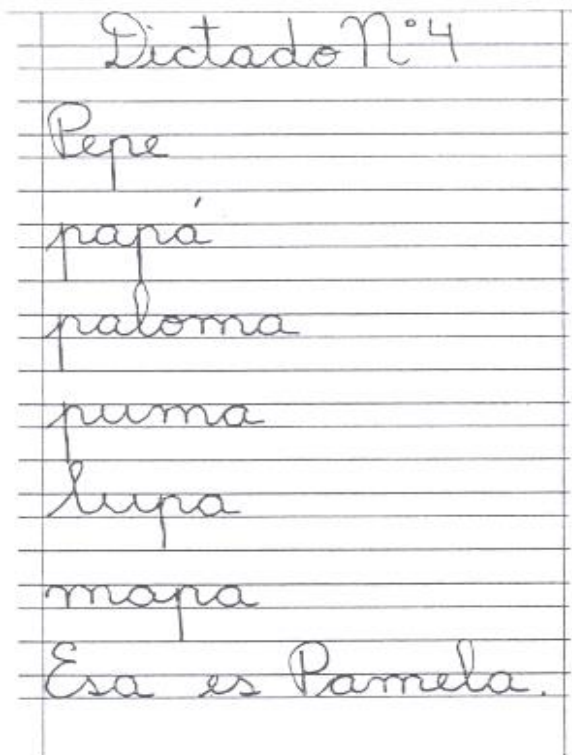 Dictado N°4
Pepe
papá
paloma
puma
lupa
mapa
Esa es Pamela.